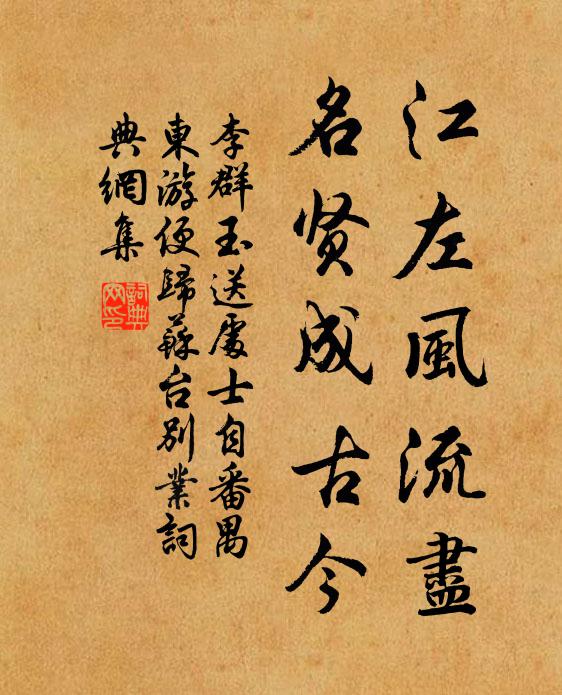 江左風流盡
名贤成古今
李群玉送處士自番禺
東游便歸蘇台別業詞
典網集
詞典
网印